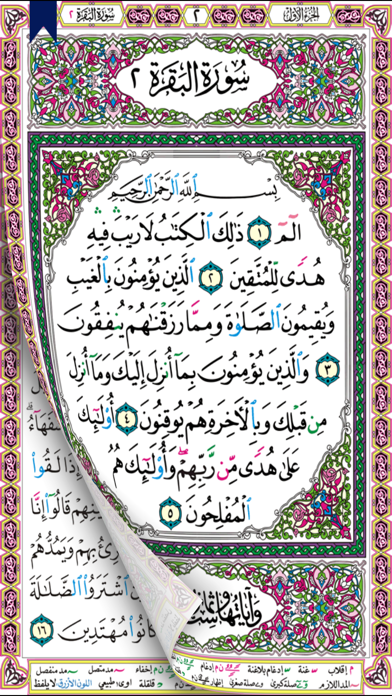 الجزء الأول
٢
سورة البقرة ٢
سُورَةُ الْبَقَرَةِ ٢
بِسْمِ ٱللَّهِ ٱلرَّحْمَٰنِ ٱلرَّحِيمِ
الٓمٓ ١ ذَٰلِكَ ٱلْكِتَٰبُ لَا رَيْبَ ۛ فِيهِ ۛ
هُدًى لِّلْمُتَّقِينَ ٢ ٱلَّذِينَ يُؤْمِنُونَ بِٱلْغَيْبِ
وَيُقِيمُونَ ٱلصَّلَوٰةَ وَمِمَّا رَزَقْنَٰهُمْ يُنفِقُونَ
٣ وَٱلَّذِينَ يُؤْمِنُونَ بِمَآ أُنزِلَ إِلَيْكَ وَمَآ أُنزِلَ
مِن قَبْلِكَ وَبِٱلْءَاخِرَةِ هُمْ يُوقِنُونَ ٤ أُو۟لَٰٓئِكَ
عَلَىٰ هُدًى مِّن رَّبِّهِمْ ۖ وَأُو۟لَٰٓئِكَ هُمُ
ٱلْمُفْلِحُونَ ٥
وَآيَاتُهَا
إِذَا لَقُوا۟
قَالُوٓا۟ إِنَّا
وَيَمُدُّهُمْ
ٱشْتَرَوُا۟ ٱلضَّلَٰلَةَ
كَانُوا۟ مُهْتَدِينَ ١٦
م إقلاب غنة إدغام بلاغنة ن م إدغام ن م إخفاء مد متصل مد منفصل
المد اللازم صلة كبرى صلة صغرى قلقلة اللون الأزرق لا يلفظ